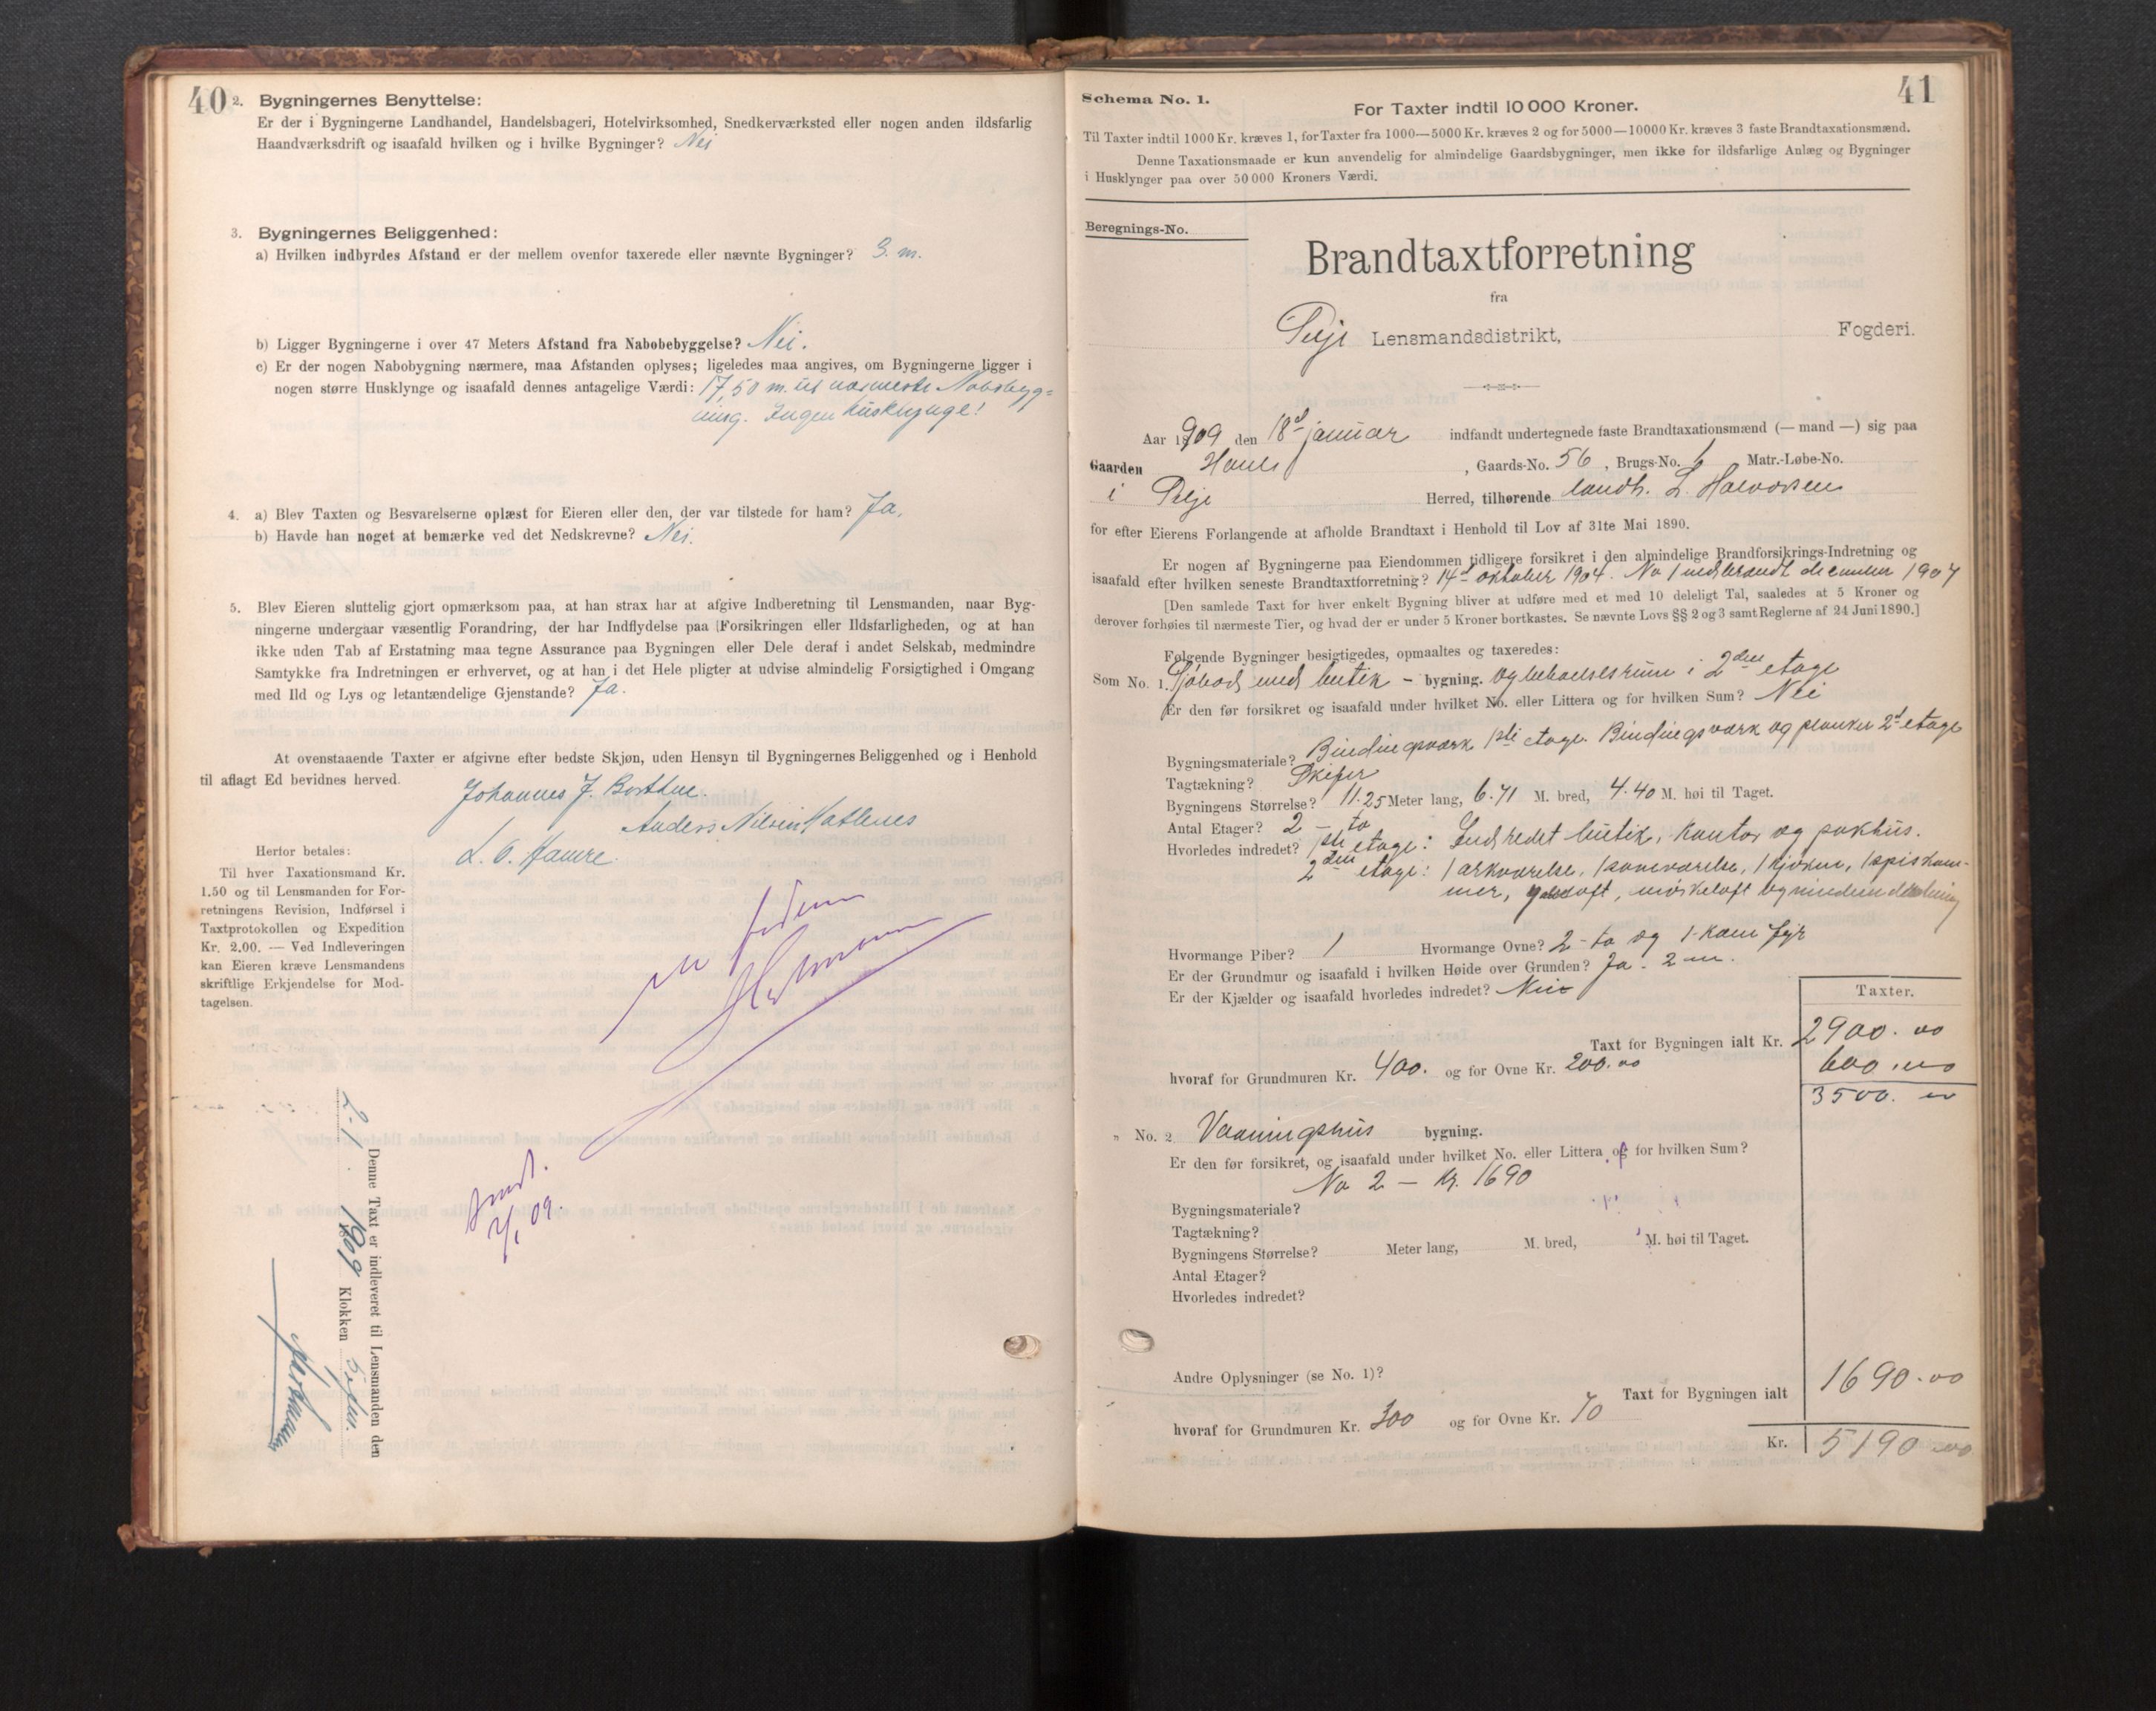 40
2. Bygningernes Benyttelse:
Er der i Bygningerne Landhandel, Handelsbageri, Hotelvirksomhed, Snedkerværksted eller nogen anden ildsfarlig
Haandværksdrift og isaafald hvilken og i hvilke Bygninger? Nei
3. Bygningernes Beliggenhed:
a) Hvilken indbyrdes Afstand er der mellem ovenfor taxerede eller nævnte Bygninger? 3. m.
b) Ligger Bygningerne i over 47 Meters Afstand fra Nabobebyggelse? Nei.
c) Er der nogen Nabobygning nærmere, maa Afstanden oplyses; ligeledes maa angives, om Bygningerne ligger i
nogen større Husklynge og isaafald dennes antagelige Værdi: 17,50 m. til nærmeste Nabobyg-
ning. Ingen husklynge!
4. a) Blev Taxten og Besvarelserne oplæst for Eieren eller den, der var tilstede for ham? Ja.
b) Havde han noget at bemærke ved det Nedskrevne? Nei.
5. Blev Eieren sluttelig gjort opmærksom paa, at han strax har at afgive Indberetning til Lensmanden, naar Byg-
ningerne undergaar væsentlig Forandring, der har Indflydelse paa Forsikringen eller Ildsfarligheden, og at han
ikke uden Tab af Erstatning maa tegne Assurance paa Bygningen eller Dele deraf i andet Selskab, medmindre
Samtykke fra Indretningen er erhvervet, og at han i det Hele pligter at udvise almindelig Forsigtighed i Omgang
med Ild og Lys og letantændelige Gjenstande? Ja.
At ovenstaaende Taxter er afgivne efter bedste Skjøn, uden Hensyn til Bygningernes Beliggenhed og i Henhold
til aflagt Ed bevidnes herved.
Johannes J. Borthne.
Anders Nilsen Hatlenes
L. O. Hamre.
Herfor betales:
Til hver Taxationsmand Kr.
1.50 og til Lensmanden for For-
retningens Revision, Indførsel i
Taxtprotokollen og Expedition
Kr. 2.00. — Ved Indleveringen
kan Eieren kræve Lensmandens
skriftlige Erkjendelse for Mod-
tagelsen.
Denne Taxt er indleveret til Lensmanden den
2.1. 1909 Klokken 5
09.
41
Schema No. 1.
For Taxter indtil 10 000 Kroner.
Til Taxter indtil 1000 Kr. kræves 1, for Taxter fra 1000—5000 Kr. kræves 2 og for 5000—10000 Kr. kræves 3 faste Brandtaxationsmænd.
Denne Taxationsmaade er kun anvendelig for almindelige Gaardsbygninger, men ikke for ildsfarlige Anlæg og Bygninger
i Husklynger paa over 50 000 Kroners Værdi.
Beregnings-No.
Brandtaxtforretning
fra
Selje Lensmandsdistrikt, Fogderi.
Aar 1909 den 18d januar indfandt undertegnede faste Brandtaxationsmænd (— mand —) sig paa
Gaarden , Gaards-No. 56, Brugs-No. Matr.-Løbe-No.
i Selje Herred, tilhørende landh. L. Halvorsen
for efter Eierens Forlangende at afholde Brandtaxt i Henhold til Lov af 31te Mai 1890.
Er nogen af Bygningerne paa Eiendommen tidligere forsikret i den almindelige Brandforsikrings-Indretning og
isaafald efter hvilken seneste Brandtaxtforretning? 14d oktober 1904. No 1 nedbrændt december 1907
[Den samlede Taxt for hver enkelt Bygning bliver at udføre med et med 10 deleligt Tal, saaledes at 5 Kroner og
derover forhøies til nærmeste Tier, og hvad der er under 5 Kroner bortkastes. Se nævnte Lovs §§ 2 og 3 samt Reglerne af 24 Juni 1890.]
Følgende Bygninger besigtigedes, opmaaltes og taxeredes:
Som No. 1. Sjøbod med butik - bygning. og beboelsesrum i 2den etage
Er den før forsikret og isaafald under hvilket No. eller Littera og for hvilken Sum? Nei
Bygningsmateriale? Bindingsværk 1ste etage. Bindingsværk og planker 2d etage
Tagtækning? Skifer
Bygningens Størrelse? 11.25 Meter lang, 6.71 M. bred, 4.40 M. høi til Taget.
Antal Etager? 2 - to
Hvorledes indredet? 1ste etage: Indredet butik, kontor og pakhus.
2den etage: 1 arkværelse, 1 soveværelse, 1 kjøken, 1 spiskam-
mer, loft, mørkeloft og
Hvormange Piber? 1 Hvormange Ovne? 2 - to og 1 komfyr
Er der Grundmur og isaafald i hvilken Høide over Grunden? Ja. 2 m.
Er der Kjælder og isaafald hvorledes indredet? Nei
Taxter.
Taxt for Bygningen ialt Kr. 2900.00
hvoraf for Grundmuren Kr. 400. og for Ovne Kr. 200.00 600.00
3500.00
" No. 2 Vaaningshus bygning.
Er den før forsikret, og isaafald under hvilket No. eller Littera, og for hvilken Sum?
No 2 — Kr. 1690
Bygningsmateriale?
Tagtækning?
Bygningens Størrelse? Meter lang, M. bred, M. høi til Taget.
Antal Etager?
Hvorledes indredet?
Andre Oplysninger (se No. 1)?
Taxt for Bygningen ialt 1690.00
hvoraf for Grundmuren Kr. 300 og for Ovne Kr. 70
Kr. 5190.00